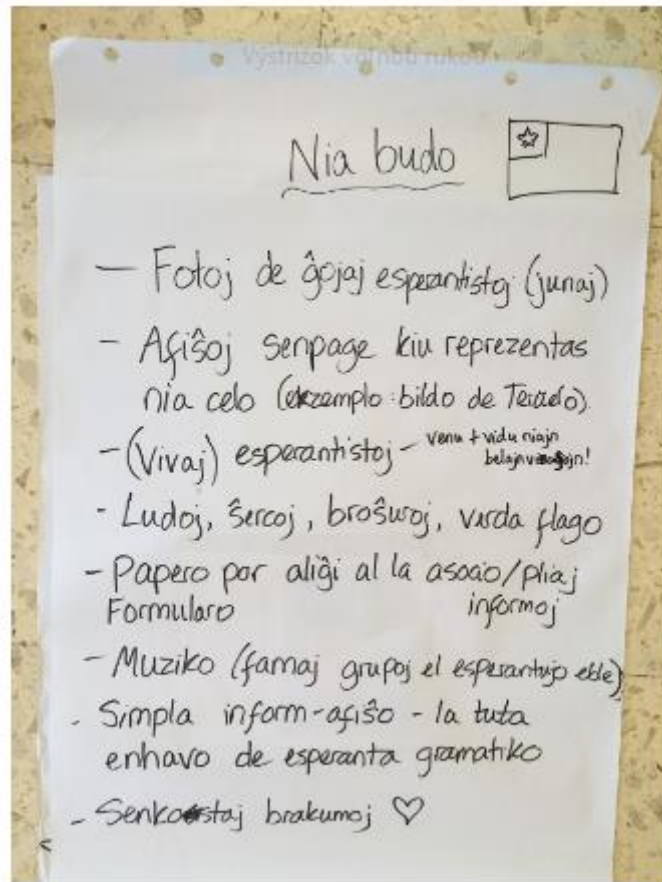 Nia budo
— Fotoj de ĝojaj esperantistoj (junaj)
- Afiŝoj senpage kiu reprezentas
nia celo (ekzemplo: bildo de
- (Vivaj) esperantistoj - venu + vidu niajn
belajn vizaĝojn!
- Ludoj, ŝercoj, broŝuroj, verda flago
- Papero por aliĝi al la asocio/pliaj
Formularo informoj
- Muziko (famaj grupoj el esperantujo eble)
- Simpla inform-afiŝo - la tuta
enhavo de esperanta gramatiko
- Senkostaj brakumoj ♡